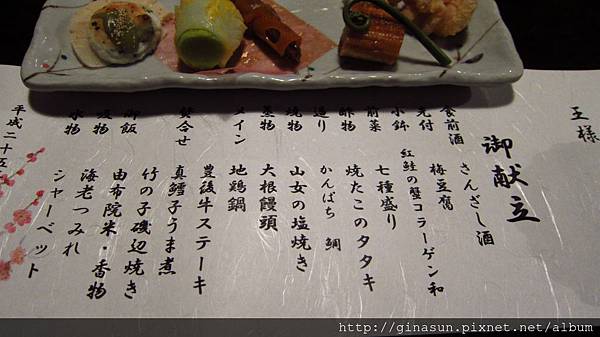 王様
御献立
食前酒 さんざし酒
先付 梅豆腐
小鉢 紅鮭の蟹コラーゲン和
前菜 七種盛り
酢物 焼たこのタタキ
造り かんぱち 鯛
焼物 山女の塩焼き
蒸物 大根饅頭
メイン 地鶏鍋
豊後牛ステーキ
焚合せ 真鱈子うま煮
竹の子磯辺焼き
御飯 由布院米・香物
吸物 海老つみれ
水物 シャーベット
平成二十五
http://ginasun.pixnet.net/album